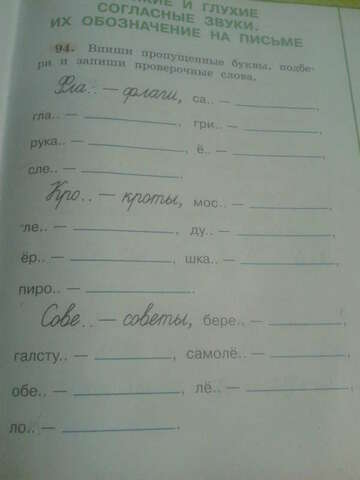 КИЕ И ГЛУХИЕ
СОГЛАСНЫЕ ЗВУКИ,
ИХ ОБОЗНАЧЕНИЕ НА ПИСЬМЕ
94. Впиши пропущенные буквы, подбе-
ри и запиши проверочные слова.
Фла.. — флаги, са.. —
гла.. — , гри.. — ,
рука.. — , ё.. — ,
сле.. — .
Кро.. — кроты, мос.. —
ле.. — , ду.. — ,
ёр.. — , шка.. — ,
пиро.. — .
Сове.. — советы, бере.. — ,
галсту.. — , самолё.. — ,
обе.. — , лё.. — ,
ло.. — .